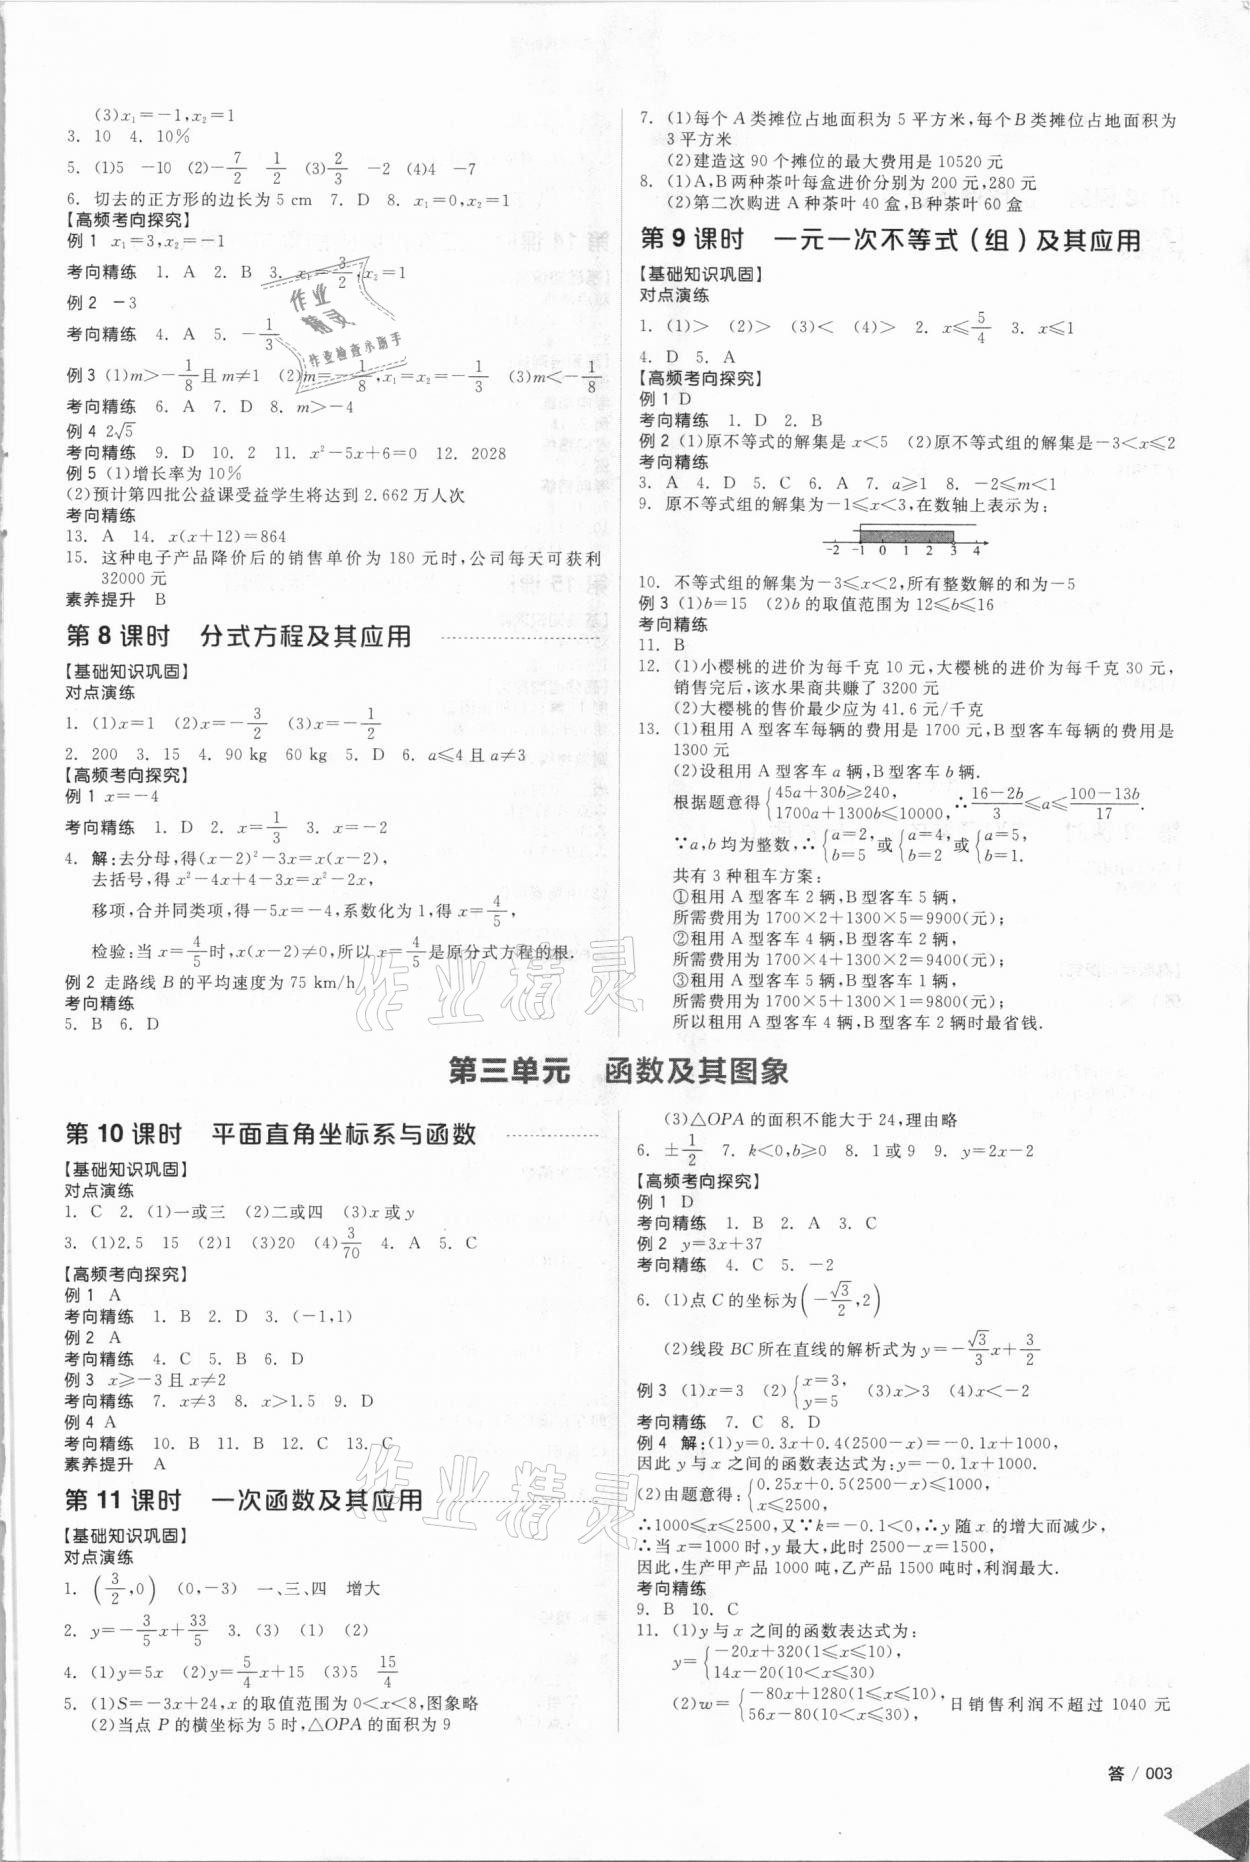 (3)x₁=-1,x₂=1
3. 10  4. 10%
5. (1)5  -10  (2)-7/2  1/2  (3)2/3  -2  (4)4  -7
6. 切去的正方形的边长为 5 cm  7. D  8. x₁=0,x₂=1
【高频考向探究】
例 1  x₁=3,x₂=-1
考向精练  1. A  2. B  3. x₁=3/2,x₂=1
例 2  -3
考向精练  4. A  5. -1/3
例 3  (1)m>-1/8且 m≠1  (2)m=-1/8,x₁=x₂=-1/3  (3)m<-1/8
考向精练  6. A  7. D  8. m>-4
例 4  2√5
考向精练  9. D  10. 2  11. x²-5x+6=0  12. 2028
例 5  (1)增长率为 10%
(2)预计第四批公益课受益学生将达到 2.662 万人次
考向精练
13. A  14. x(x+12)=864
15. 这种电子产品降价后的销售单价为 180 元时,公司每天可获利
32000 元
素养提升  B
第 8 课时  分式方程及其应用
【基础知识巩固】
对点演练
1. (1)x=1  (2)x=-3/2  (3)x=-1/2
2. 200  3. 15  4. 90 kg  60 kg  5. D  6. a≤4 且 a≠3
【高频考向探究】
例 1  x=-4
考向精练  1. D  2. x=1/3  3. x=-2
4. 解:去分母,得(x-2)²-3x=x(x-2),
去括号,得 x²-4x+4-3x=x²-2x,
移项,合并同类项,得-5x=-4,系数化为 1,得 x=4/5,
检验:当 x=4/5时,x(x-2)≠0,所以 x=4/5是原分式方程的根.
例 2  走路线 B 的平均速度为 75 km/h
考向精练
5. B  6. D
7. (1)每个 A 类摊位占地面积为 5 平方米,每个 B 类摊位占地面积为
3 平方米
(2)建造这 90 个摊位的最大费用是 10520 元
8. (1)A,B 两种茶叶每盒进价分别为 200 元,280 元
(2)第二次购进 A 种茶叶 40 盒,B 种茶叶 60 盒
第 9 课时  一元一次不等式(组)及其应用
【基础知识巩固】
对点演练
1. (1)>  (2)>  (3)<  (4)>  2. x≤5/4  3. x≤1
4. D  5. A
【高频考向探究】
例 1  D
考向精练  1. D  2. B
例 2  (1)原不等式的解集是 x<5  (2)原不等式组的解集是-3<x≤2
考向精练
3. A  4. D  5. C  6. A  7. a≥1  8. -2≤m<1
9. 原不等式组的解集为-1≤x<3,在数轴上表示为:
-2 -1 0 1 2 3 4
10. 不等式组的解集为-3≤x<2,所有整数解的和为-5
例 3  (1)b=15  (2)b 的取值范围为 12≤b≤16
考向精练
11. B
12. (1)小樱桃的进价为每千克 10 元,大樱桃的进价为每千克 30 元,
销售完后,该水果商共赚了 3200 元
(2)大樱桃的售价最少应为 41.6 元/千克
13. (1)租用 A 型客车每辆的费用是 1700 元,B 型客车每辆的费用是
1300 元
(2)设租用 A 型客车 a 辆,B 型客车 b 辆.
根据题意得{45a+30b≥240, 1700a+1300b≤10000, ∴(16-2b)/3≤a≤(100-13b)/17.
∵a,b 均为整数,∴{a=2, b=5 或{a=4, b=2 或{a=5, b=1.
共有 3 种租车方案:
①租用 A 型客车 2 辆,B 型客车 5 辆,
所需费用为 1700×2+1300×5=9900(元);
②租用 A 型客车 4 辆,B 型客车 2 辆,
所需费用为 1700×4+1300×2=9400(元);
③租用 A 型客车 5 辆,B 型客车 1 辆,
所需费用为 1700×5+1300×1=9800(元);
所以租用 A 型客车 4 辆,B 型客车 2 辆时最省钱.
第三单元  函数及其图象
第 10 课时  平面直角坐标系与函数
【基础知识巩固】
对点演练
1. C  2. (1)一或三  (2)二或四  (3)x 或 y
3. (1)2.5  15  (2)1  (3)20  (4)3/70  4. A  5. C
【高频考向探究】
例 1  A
考向精练  1. B  2. D  3. (-1,1)
例 2  A
考向精练  4. C  5. B  6. D
例 3  x≥-3 且 x≠2
考向精练  7. x≠3  8. x>1.5  9. D
例 4  A
考向精练  10. B  11. B  12. C  13. C
素养提升  A
第 11 课时  一次函数及其应用
【基础知识巩固】
对点演练
1. (3/2,0)  (0,-3)  一、三、四  增大
2. y=-3/5x+33/5  3. (3)  (1)  (2)
4. (1)y=5x  (2)y=5/4x+15  (3)5  15/4
5. (1)S=-3x+24,x 的取值范围为 0<x<8,图象略
(2)当点 P 的横坐标为 5 时,△OPA 的面积为 9
(3)△OPA 的面积不能大于 24,理由略
6. ±1/2  7. k<0,b≥0  8. 1 或 9  9. y=2x-2
【高频考向探究】
例 1  D
考向精练  1. B  2. A  3. C
例 2  y=3x+37
考向精练  4. C  5. -2
6. (1)点 C 的坐标为(-√3/2,2)
(2)线段 BC 所在直线的解析式为 y=-√3/3x+3/2
例 3  (1)x=3  (2){x=3, y=5  (3)x>3  (4)x<-2
考向精练  7. C  8. D
例 4  解:(1)y=0.3x+0.4(2500-x)=-0.1x+1000,
因此 y 与 x 之间的函数表达式为:y=-0.1x+1000.
(2)由题意得:{0.25x+0.5(2500-x)≤1000, x≤2500,
∴1000≤x≤2500,又∵k=-0.1<0,∴y 随 x 的增大而减少,
∴当 x=1000 时,y 最大,此时 2500-x=1500,
因此,生产甲产品 1000 吨,乙产品 1500 吨时,利润最大.
考向精练
9. B  10. C
11. (1)y 与 x 之间的函数表达式为:
y={-20x+320(1≤x≤10), 14x-20(10<x≤30)
(2)w={-80x+1280(1≤x≤10), 56x-80(10<x≤30), 日销售利润不超过 1040 元
答 / 003
作业精灵
作业检查小助手
作业精灵
作业精灵